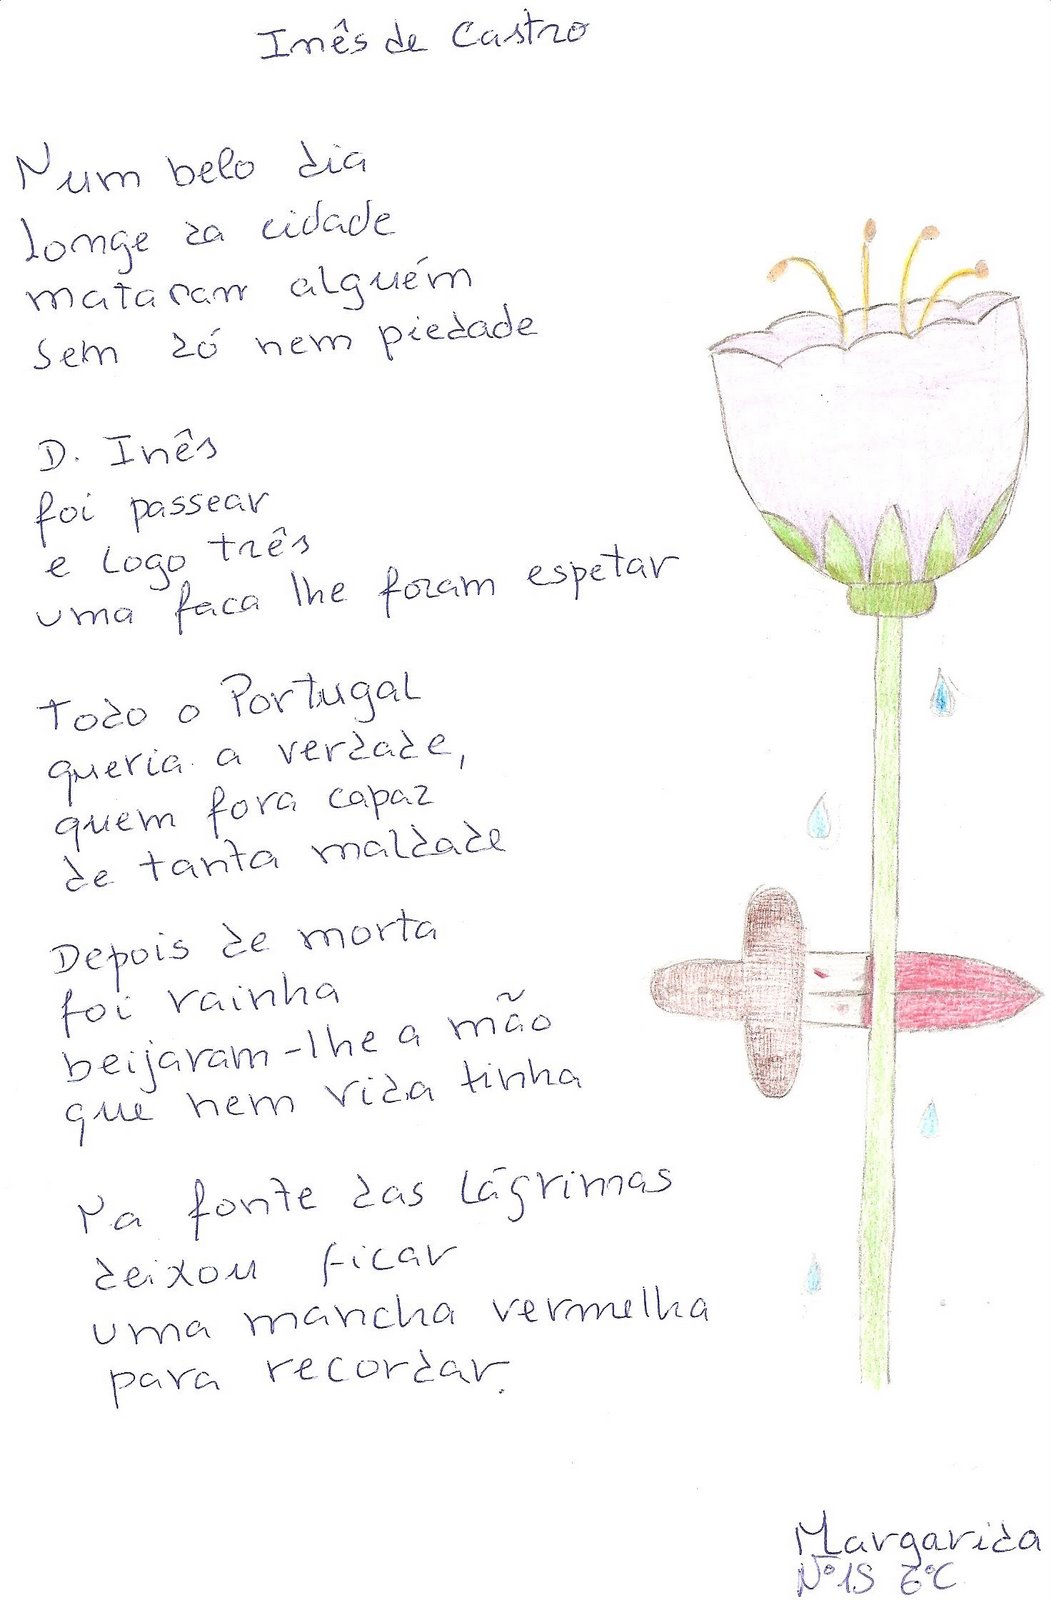 Inês de Castro
Num belo dia
longe da cidade
mataram alguém
sem dó nem piedade
D. Inês
foi passear
e logo três
uma faca lhe foram espetar
Todo o Portugal
queria a verdade,
quem fora capaz
de tanta maldade
Depois de morta
foi rainha
beijaram-lhe a mão
que nem vida tinha
Na fonte das lágrimas
deixou ficar
uma mancha vermelha
para recordar.
Margarida
Nº 15 6ºC